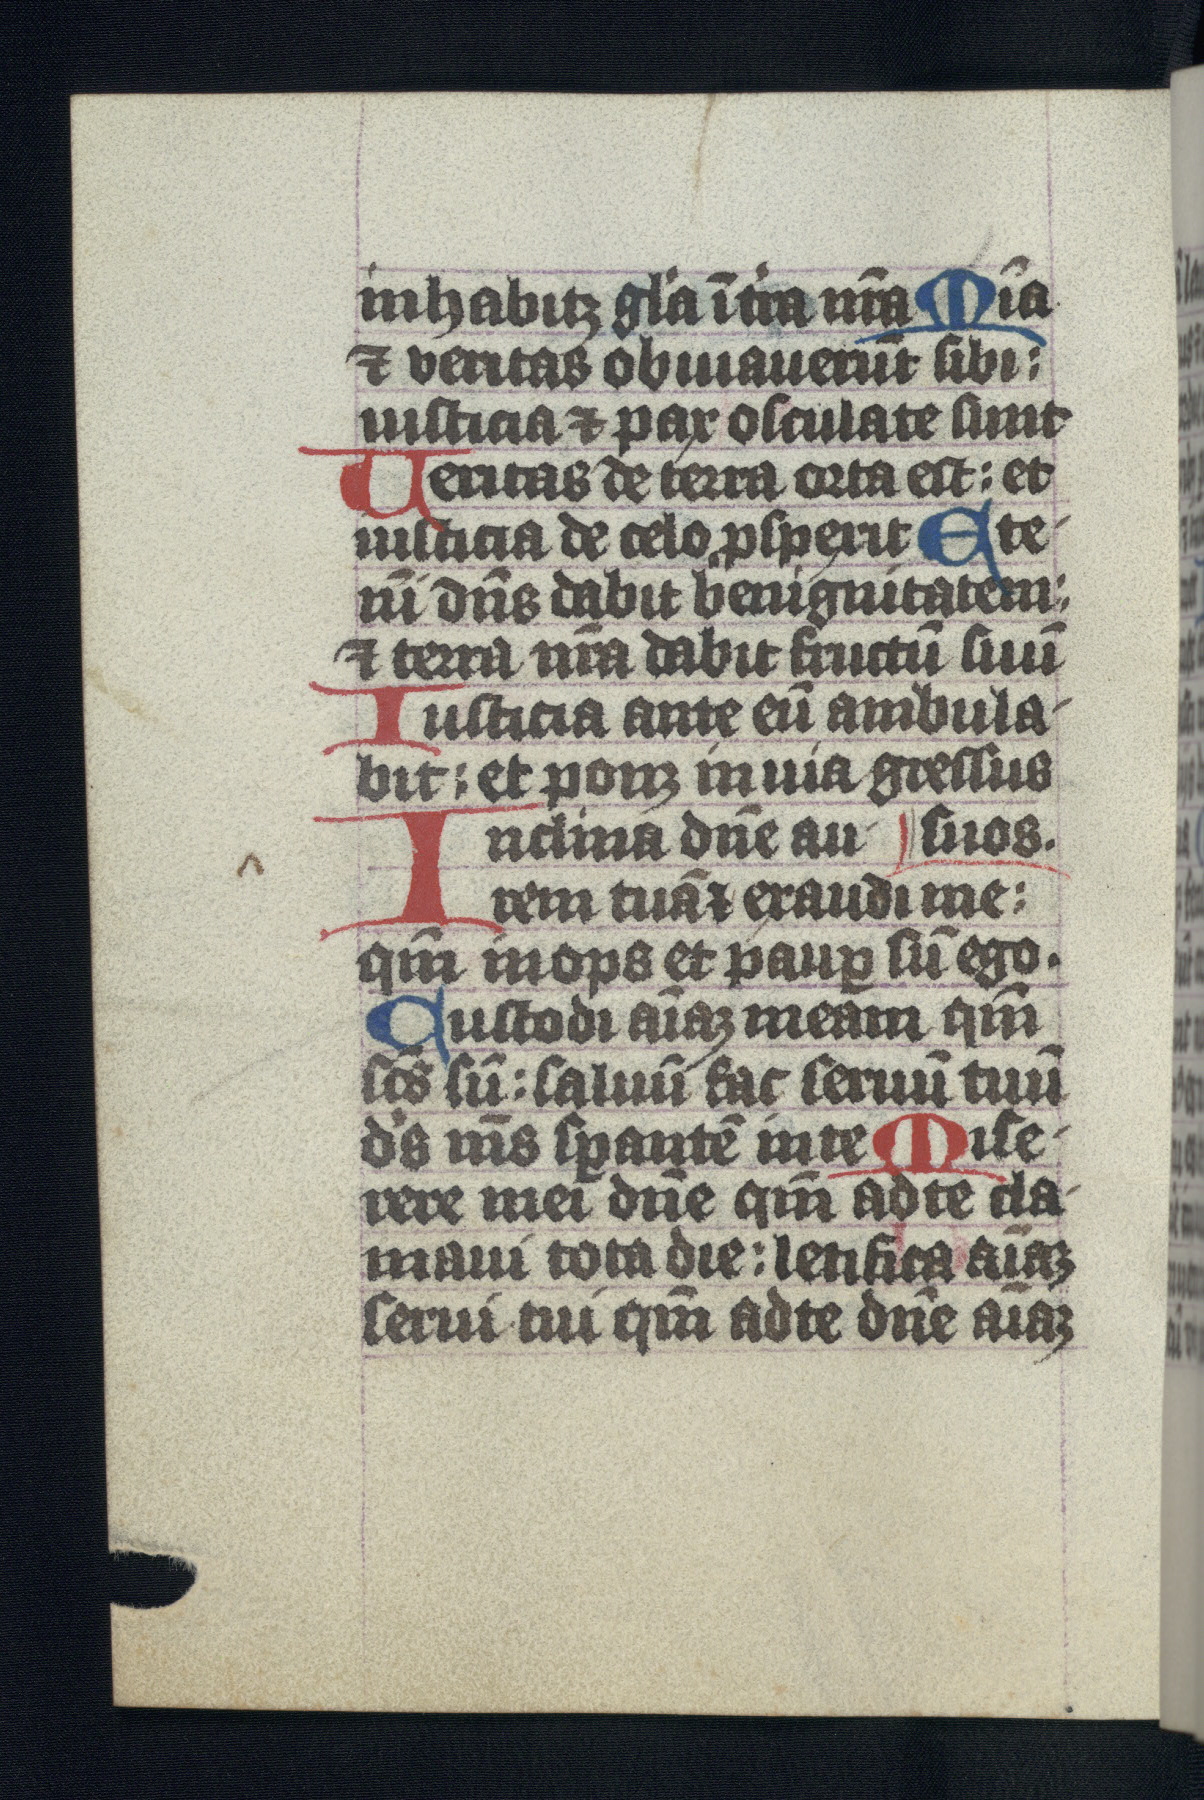 inhabitꝫ gl̄a ī t̄ra nr̄a Mīa
⁊ veritas obuiauerūt sibi:
iusticia ⁊ pax osculate sunt
Ueritas de terra orta est: et
iusticia de celo ꝓsperit Ete-
nī dn̄s dabit benignitatem:
⁊ terra nr̄a dabit fructū suū
Iusticia ante eū ambula-
bit: et ponꝫ in uia gressus
Inclina dn̄e au- suos.
rem tuā ⁊ exaudi me:
qm̄ inops et paup̲ sū ego.
Custodi aīaꝫ meam qm̄
sc̄s sū: saluū fac seruū tuū
d's m̄s sp̲antē in te Mise-
rere mei dn̄e qm̄ ad te cla-
maui tota die: letifica aīaꝫ
serui tui qm̄ ad te dn̄e aīaꝫ